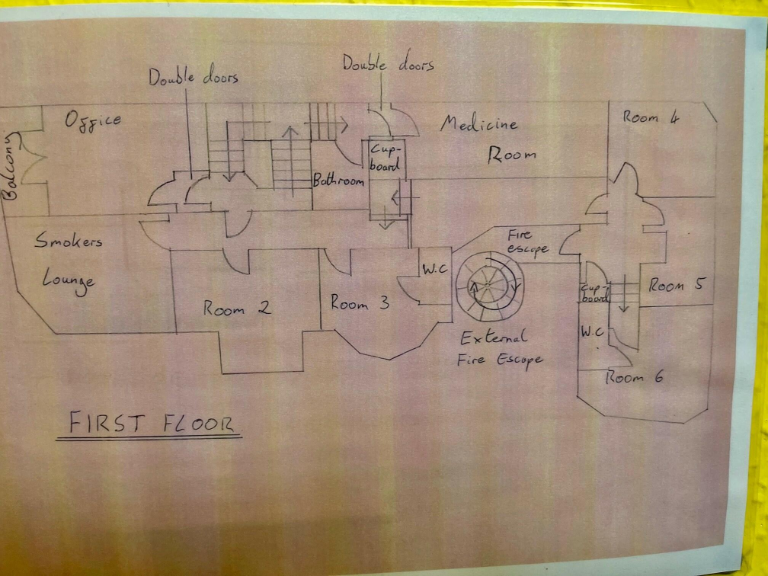 Double doors
Double doors
Office
Balcony
Medicine
Room
Room 4
Cup-
board
Bathroom
Smokers
Lounge
Fire
escape
W.C
Room 2
Room 3
Room 5
Cup-
board
W.C
External
Fire Escape
Room 6
FIRST FLOOR